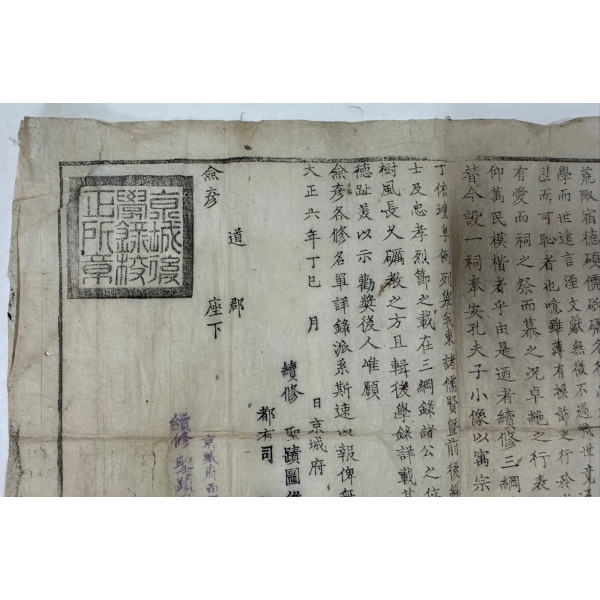 荒陬宿德碩儒
學而世遠言湮文獻無徵不過幾世竟
悲而可恥者也噫雖薄有操節之行於
有愛而祠之祭而慕之況卓絶之行表
仰萬民模楷者乎由是迺者續修三綱
替今設一祠奉安孔夫子小像以寓宗
丁依禮奠例列與我東諸儒賢暨前後
士及忠孝烈節之載在三綱錄諸公之位
樹風長久礪教之方且輯後學錄詳載其
德趾美以示勸奬後人唯願
僉彦各修名單詳錄派系斯速以報俾無
大正六年丁巳 月 日京城府
續修 聖蹟圖
都有司
道 郡
僉彦 座下
京城後學錄校正所章
京城府
續修 聖蹟